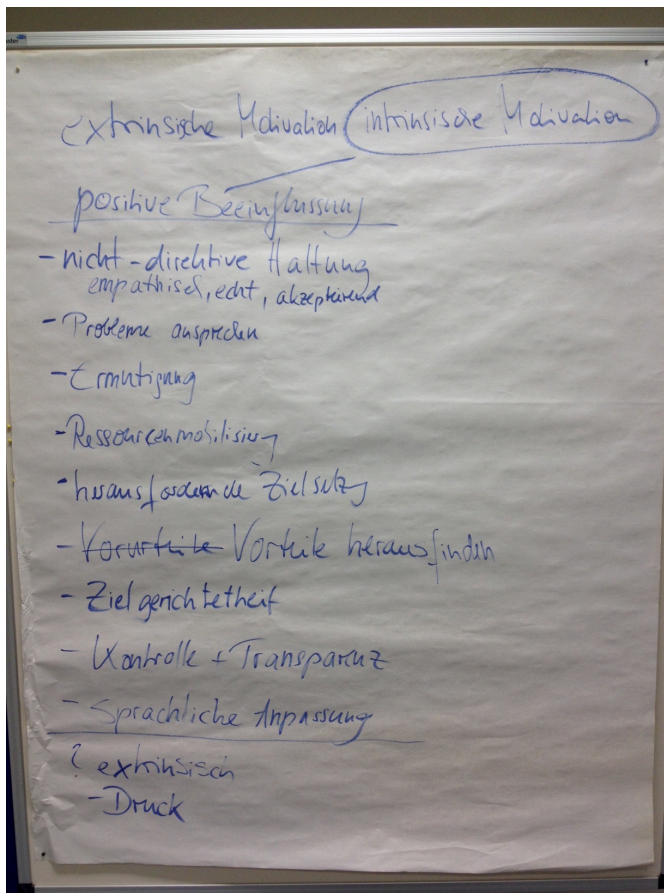 extrinsische Motivation intrinsische Motivation
positive Beeinflussung
- nicht-direktive Haltung
empathisch, echt, akzeptierend
- Probleme ansprechen
- Ermutigung
- Ressourcenmobilisierung
- herausfordernde Zielsetzg
- Vorurteile Vorteile herausfinden
- Zielgerichtetheit
- Kontrolle + Transparenz
- Sprachliche Anpassung
? extrinsisch
- Druck